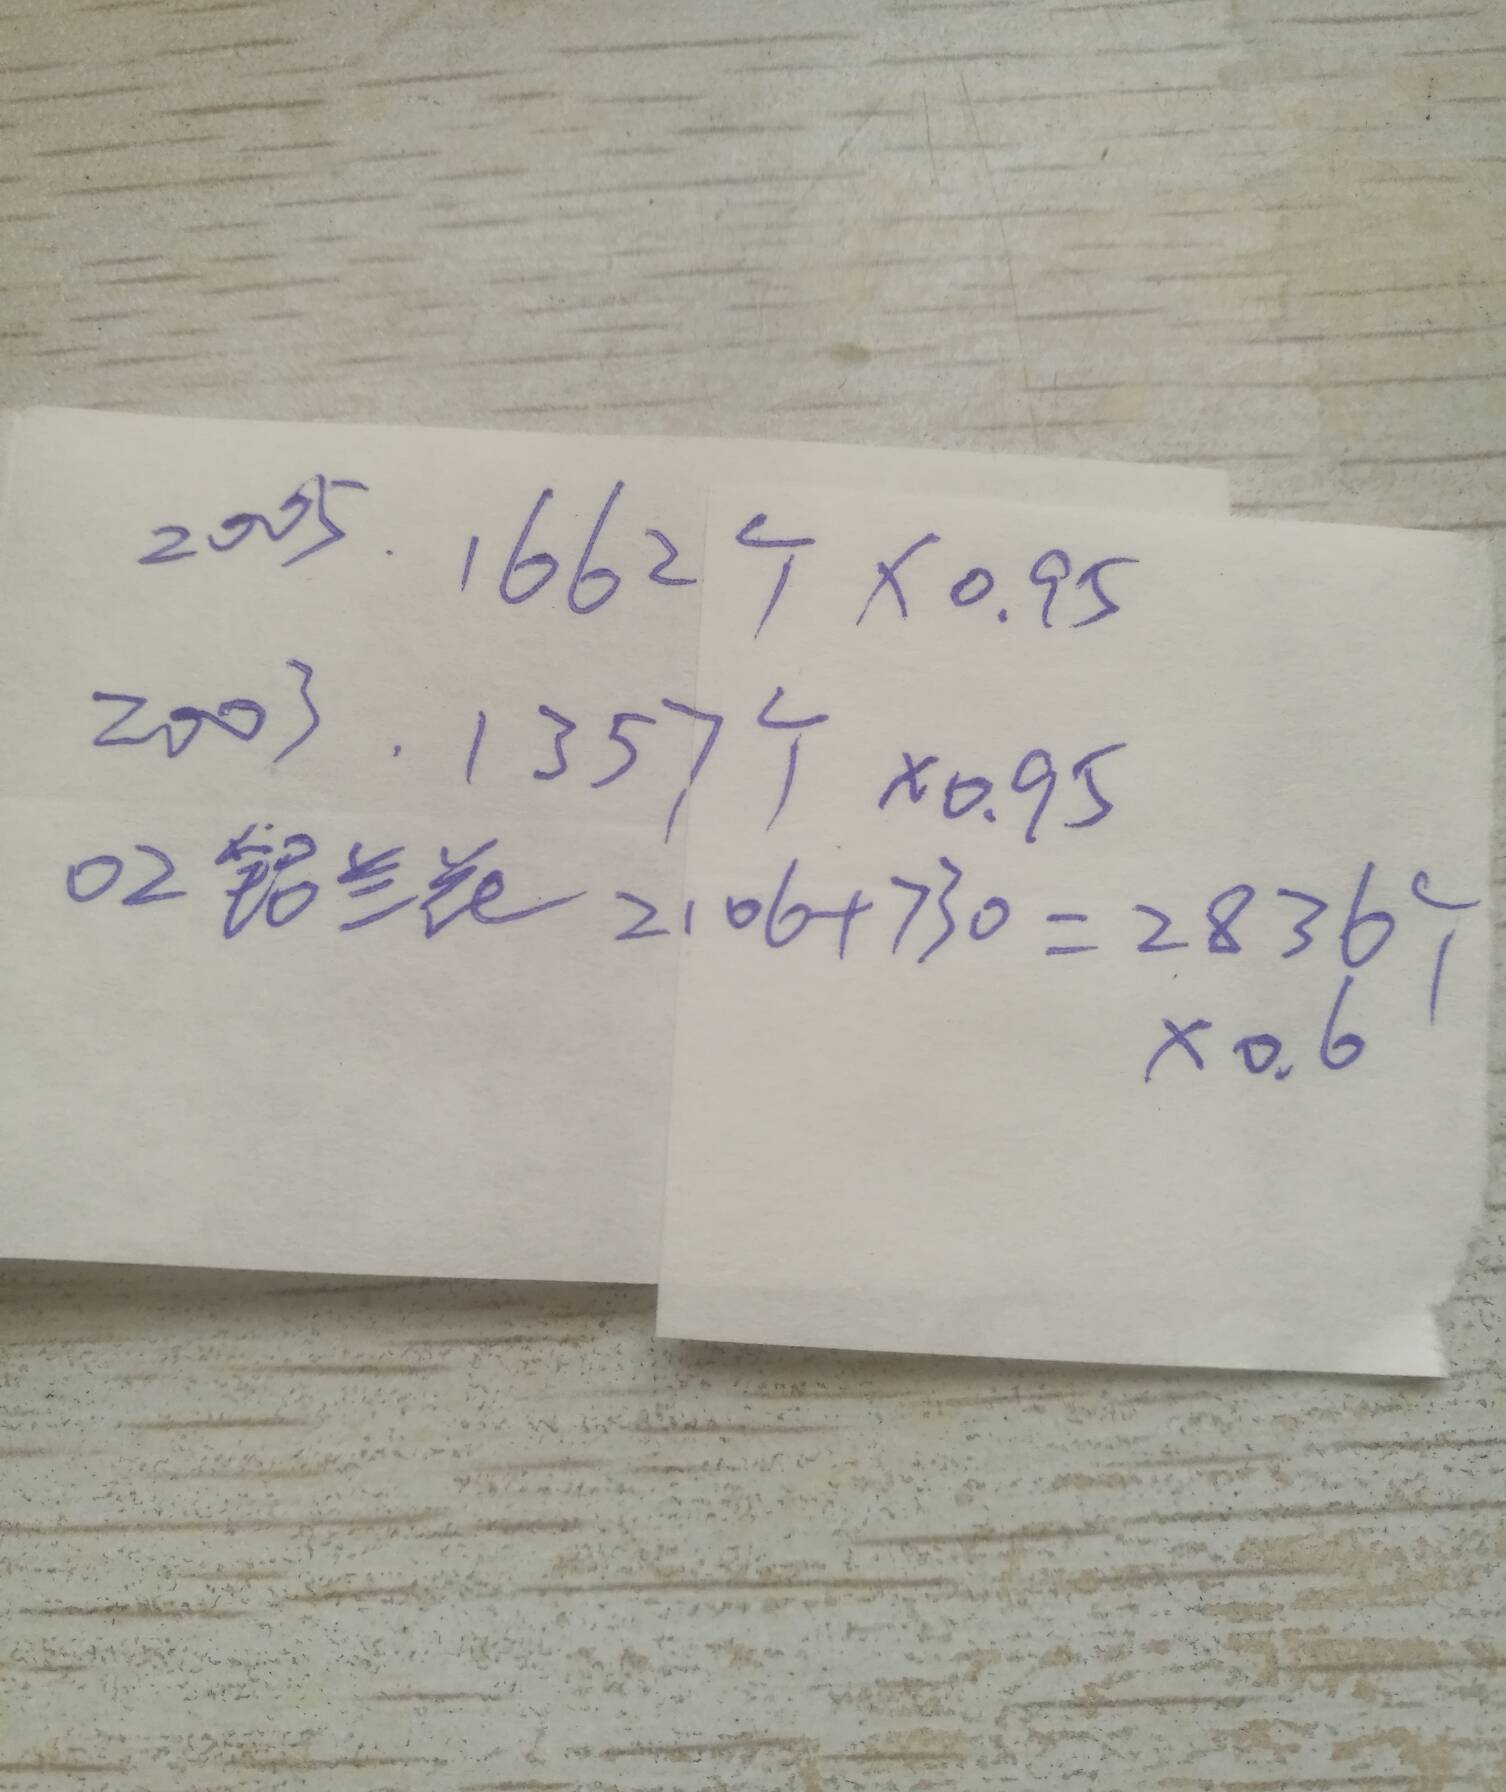 2005. 1662个 ×0.95
2003. 1357个 ×0.95
02铝兰花 2106+730=2836个
×0.6